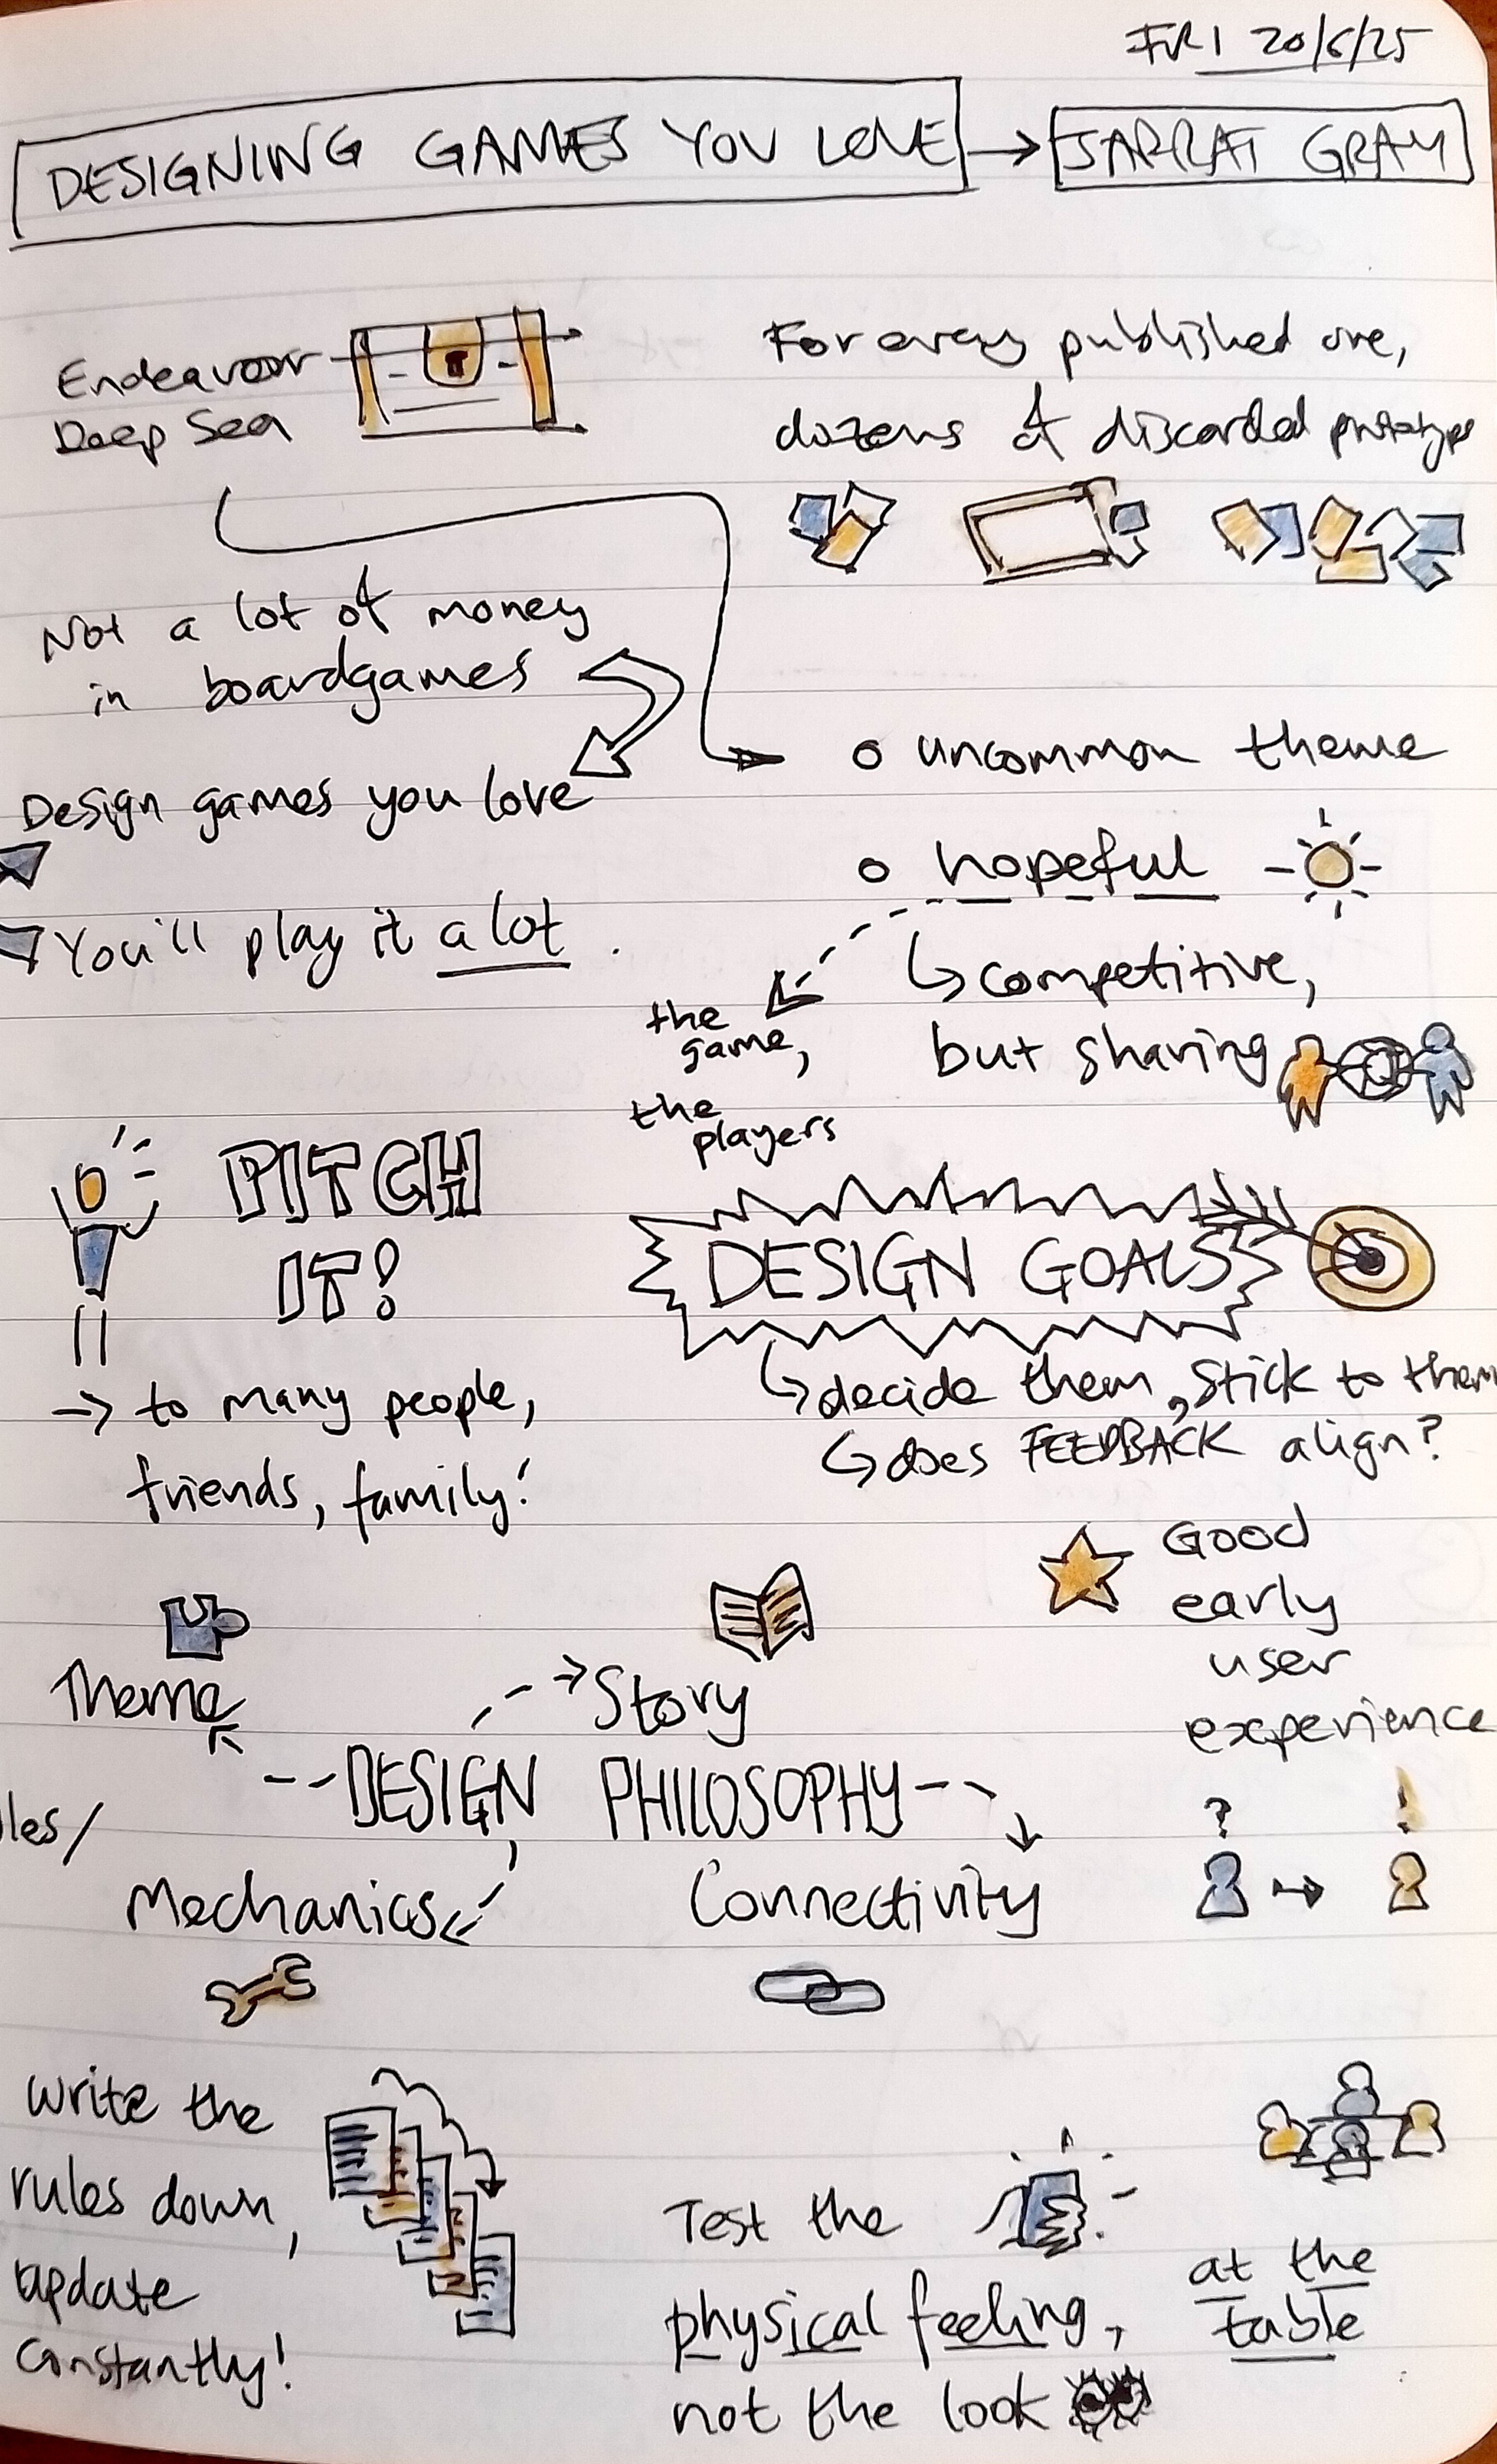 FRI 20/6/25
DESIGNING GAMES YOU LOVE → JARRAT GRAY
Endeavour
Deep Sea
For every published one,
dozens of discarded prototype
Not a lot of money
in boardgames
Design games you love
You'll play it a lot.
o uncommon theme
o hopeful
↳ competitive,
but sharing
the
game,
the
players
PITCH
IT!
→ to many people,
friends, family!
DESIGN GOALS
↳ decide them, stick to them
↳ does FEEDBACK align?
Good
early
user
experience
? → !
Theme
Story
DESIGN PHILOSOPHY
les/
Mechanics
Connectivity
Write the
rules down,
update
constantly!
Test the
physical feeling,
not the look
at the
table